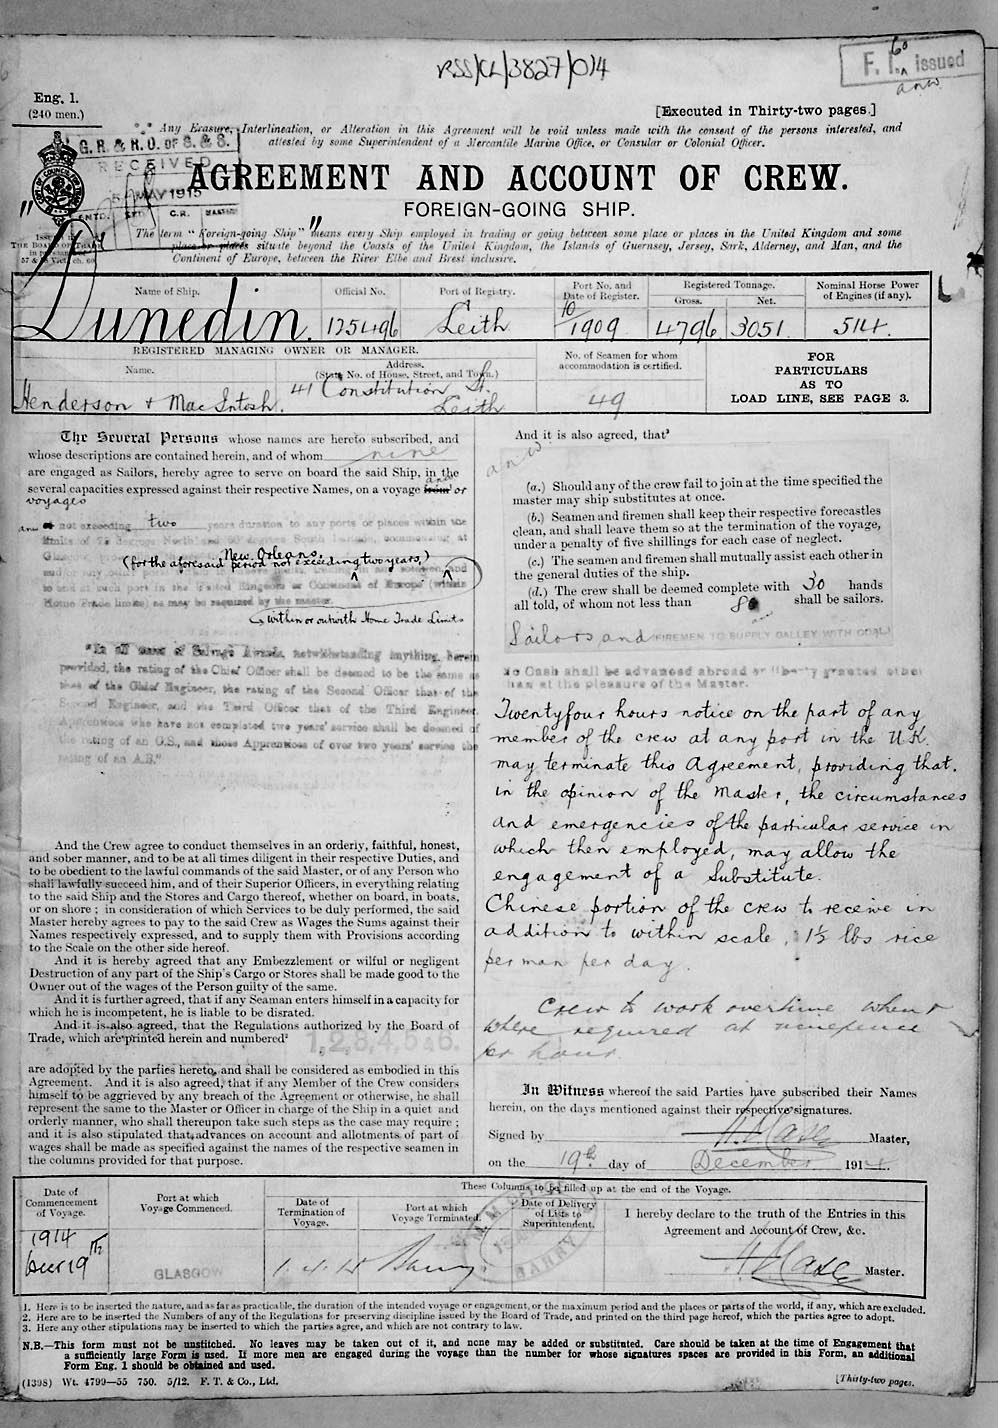 RSS/CL/3827/014
60
F. I. issued
anw.
Eng. 1.
(240 men.)
[Executed in Thirty-two pages.]
Any Erasure, Interlineation, or Alteration in this Agreement will be void unless made with the consent of the persons interested, and
attested by some Superintendent of a Mercantile Marine Office, or Consular or Colonial Officer.
G. R. & R. O. OF S. & S.
RECEIVED
MAY 1915
C.R.
AGREEMENT AND ACCOUNT OF CREW.
FOREIGN-GOING SHIP.
The term "Foreign-going Ship" means every Ship employed in trading or going between some place or places in the United Kingdom and some
place or places situate beyond the Coasts of the United Kingdom, the Islands of Guernsey, Jersey, Sark, Alderney, and Man, and the
Continent of Europe, between the River Elbe and Brest inclusive.
THE BOARD OF TRADE
Name of Ship.
Official No.
Port of Registry.
Port No. and
Date of Register.
Registered Tonnage.
Gross.
Net.
Nominal Horse Power
of Engines (if any).
"Dunedin."
125496
Leith
10/1909
4796
3051
514.
REGISTERED MANAGING OWNER OR MANAGER.
Name.
Address.
(State No. of House, Street, and Town.)
No. of Seamen for whom
accommodation is certified.
FOR
PARTICULARS
AS TO
LOAD LINE, SEE PAGE 3.
Henderson & MacIntosh.
41 Constitution St.
Leith
49
The Several Persons whose names are hereto subscribed, and
whose descriptions are contained herein, and of whom nine
are engaged as Sailors, hereby agree to serve on board the said Ship, in the
several capacities expressed against their respective Names, on a voyage from or
voyages
anw
not exceeding two years duration to any ports or places within the
New Orleans,
(for the aforesaid period not exceeding two years,)
Home Trade limits) as may be required by the master.
within or outwith Home Trade Limits
"In all cases of Salvage Awards, notwithstanding anything herein
provided, the rating of the Chief Officer shall be deemed to be the same as
that of the Chief Engineer, the rating of the Second Officer that of the
Second Engineer, and the Third Officer that of the Third Engineer.
Apprentices who have not completed two years' service shall be deemed of
the rating of an O.S., and those Apprentices of over two years' service the
rating of an A.B."
And the Crew agree to conduct themselves in an orderly, faithful, honest,
and sober manner, and to be at all times diligent in their respective Duties, and
to be obedient to the lawful commands of the said Master, or of any Person who
shall lawfully succeed him, and of their Superior Officers, in everything relating
to the said Ship and the Stores and Cargo thereof, whether on board, in boats,
or on shore; in consideration of which Services to be duly performed, the said
Master hereby agrees to pay to the said Crew as Wages the Sums against their
Names respectively expressed, and to supply them with Provisions according
to the Scale on the other side hereof.
And it is hereby agreed that any Embezzlement or wilful or negligent
Destruction of any part of the Ship's Cargo or Stores shall be made good to the
Owner out of the wages of the Person guilty of the same.
And it is further agreed, that if any Seaman enters himself in a capacity for
which he is incompetent, he is liable to be disrated.
And it is also agreed, that the Regulations authorized by the Board of
Trade, which are printed herein and numbered² 1,2,3,4,5 & 6.
are adopted by the parties hereto, and shall be considered as embodied in this
Agreement. And it is also agreed, that if any Member of the Crew considers
himself to be aggrieved by any breach of the Agreement or otherwise, he shall
represent the same to the Master or Officer in charge of the Ship in a quiet and
orderly manner, who shall thereupon take such steps as the case may require;
and it is also stipulated that advances on account and allotments of part of
wages shall be made as specified against the names of the respective seamen in
the columns provided for that purpose.
And it is also agreed, that³
anw
(a.) Should any of the crew fail to join at the time specified the
master may ship substitutes at once.
(b.) Seamen and firemen shall keep their respective forecastles
clean, and shall leave them so at the termination of the voyage,
under a penalty of five shillings for each case of neglect.
(c.) The seamen and firemen shall mutually assist each other in
the general duties of the ship.
(d.) The crew shall be deemed complete with 30 hands
all told, of whom not less than 8 shall be sailors.
Sailors and FIREMEN TO SUPPLY GALLEY WITH COAL
No Cash shall be advanced abroad or liberty granted other
than at the pleasure of the Master.
Twentyfour hours notice on the part of any
member of the crew at any port in the U.K.
may terminate this Agreement, providing that,
in the opinion of the Master, the circumstances
and emergencies of the particular service in
which then employed, may allow the
engagement of a Substitute.
Chinese portion of the crew to receive in
addition to within scale, 1½ lbs rice
per man per day.
Crew to work overtime when &
where required at ninepence
per hour.
In Witness whereof the said Parties have subscribed their Names
herein, on the days mentioned against their respective signatures.
Signed by Master,
on the 19th day of December 1914.
These Columns to be filled up at the end of the Voyage.
Date of
Commencement
of Voyage.
Port at which
Voyage Commenced.
Date of
Termination of
Voyage.
Port at which
Voyage Terminated.
Date of Delivery
of Lists to
Superintendent.
I hereby declare to the truth of the Entries in this
Agreement and Account of Crew, &c.
1914
Dec 19
GLASGOW
Barry
BARRY
Master.
1. Here is to be inserted the nature, and as far as practicable, the duration of the intended voyage or engagement, or the maximum period and the places or parts of the world, if any, which are excluded.
2. Here are to be inserted the Numbers of any of the Regulations for preserving discipline issued by the Board of Trade, and printed on the third page hereof, which the parties agree to adopt.
3. Here any other stipulations may be inserted to which the parties agree, and which are not contrary to law.
N.B.—This form must not be unstitched. No leaves may be taken out of it, and none may be added or substituted. Care should be taken at the time of Engagement that
a sufficiently large Form is used. If more men are engaged during the voyage than the number for whose signatures spaces are provided in this Form, an additional
Form Eng. 1 should be obtained and used.
(1398) Wt. 4799—55 750. 5/12. F. T. & Co., Ltd.
[Thirty-two pages.